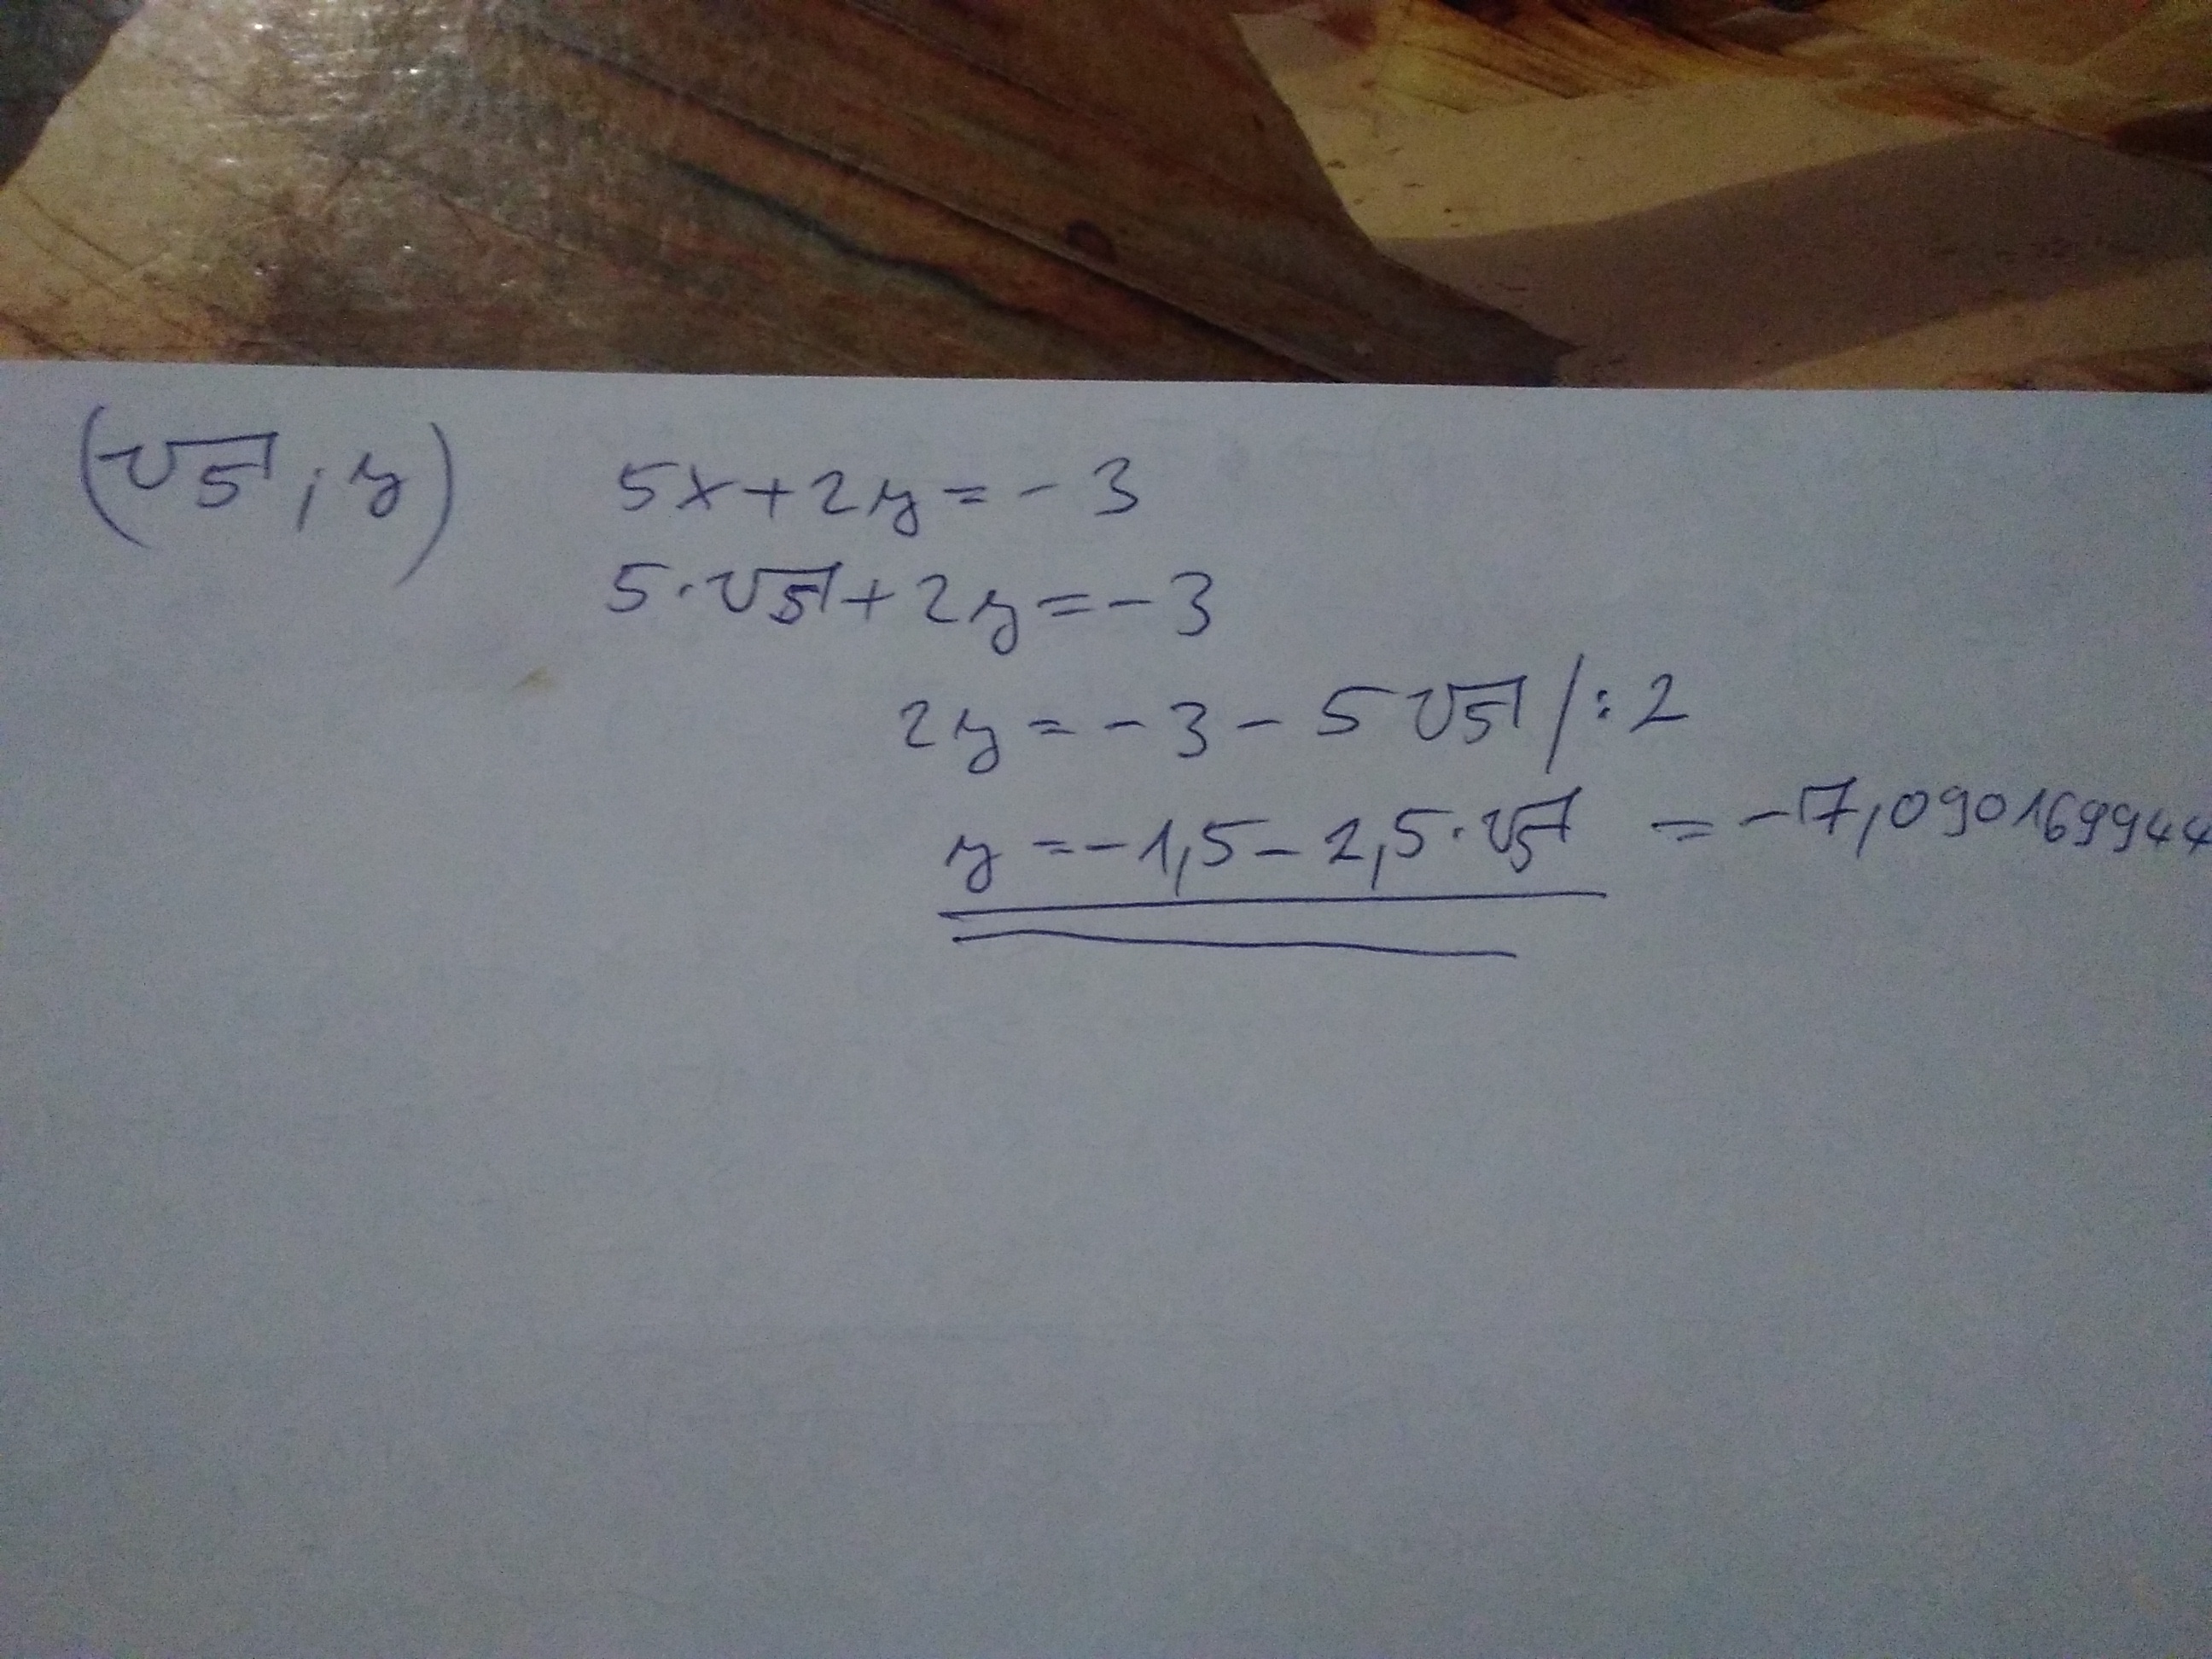 (√5 ; y) 5x + 2y = - 3
5 · √5 + 2y = - 3
2y = - 3 - 5√5 / : 2
y = - 1,5 - 2,5 · √5 = - 7,090169944